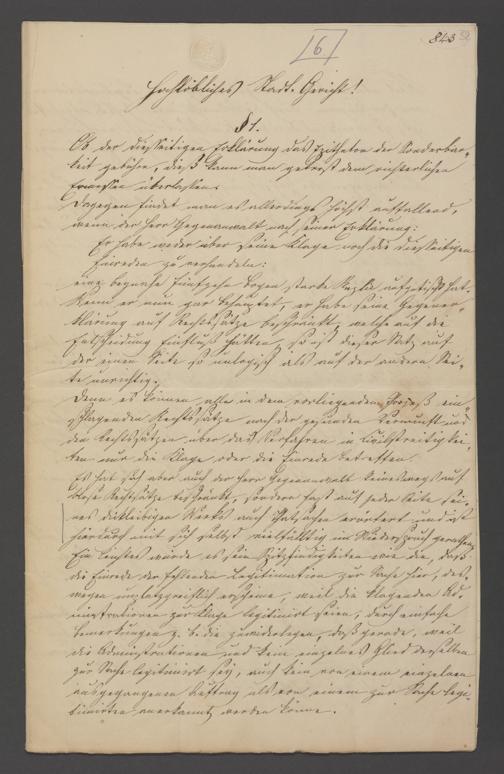 843
6
Hochlöbliches Stadt-Gericht!
§ 1.
Ob der diesseitigen Erklärung das Epitheton der Sonderbar-
keit gebühre, dieß kann man getrost dem richterlichen
Ermessen überlassen.
Dagegen findet man es allerdings höchst auffallend,
wenn der Herr Gegenanwalt nach seiner Erklärung:
Er habe weder über seine Klage noch die diesseitigen
Einreden zu verhandeln:
eine beynahe fünfzehn Bogen starke Replik aufgetischt hat.
Wenn er nun gar behauptet, er habe seine Gegener-
klärung auf Rechtssätze beschränkt, welche auf die
Entscheidung Einfluß hätten, so ist dieser Satz auf
der einen Seite so unlogisch als auf der andern Sei-
te unrichtig.
Denn es können alle in dem vorliegenden Prozeß ein-
schlagenden Rechtssätze nach der gesunden Vernunft und
den Rechtssätzen über das Verfahren in Civilstreitigkei-
ten nur die Klage oder die Einrede betreffen.
Es hat sich aber auch der Herr Gegenanwalt keineswegs auf
bloße Rechtssätze beschränkt, sondern fast auf jeder Seite sei-
nes dickleibigen Werks auch Thatsachen erörtert und ist
hierdurch mit sich selbst vielfältig in Widerspruch gerathen.
Ein Leichtes würde es sein Spitzfindigkeiten wie die, daß
die Einrede der fehlenden Legitimation zur Sache hier, des-
wegen erscheine, weil die klagenden Ad-
ministrationen zur Klage legitimirt seien, durch einfache
Bemerkungen z. b. die zu widerlegen, daß gerade, weil
die Administrationen und kein einzelnes Glied derselben
zur Sache legitimirt sey, auch kein von einem einzelnen
ausgegangener Auftrag als von einem zur Sache legi-
timirten anerkannt werden könne.